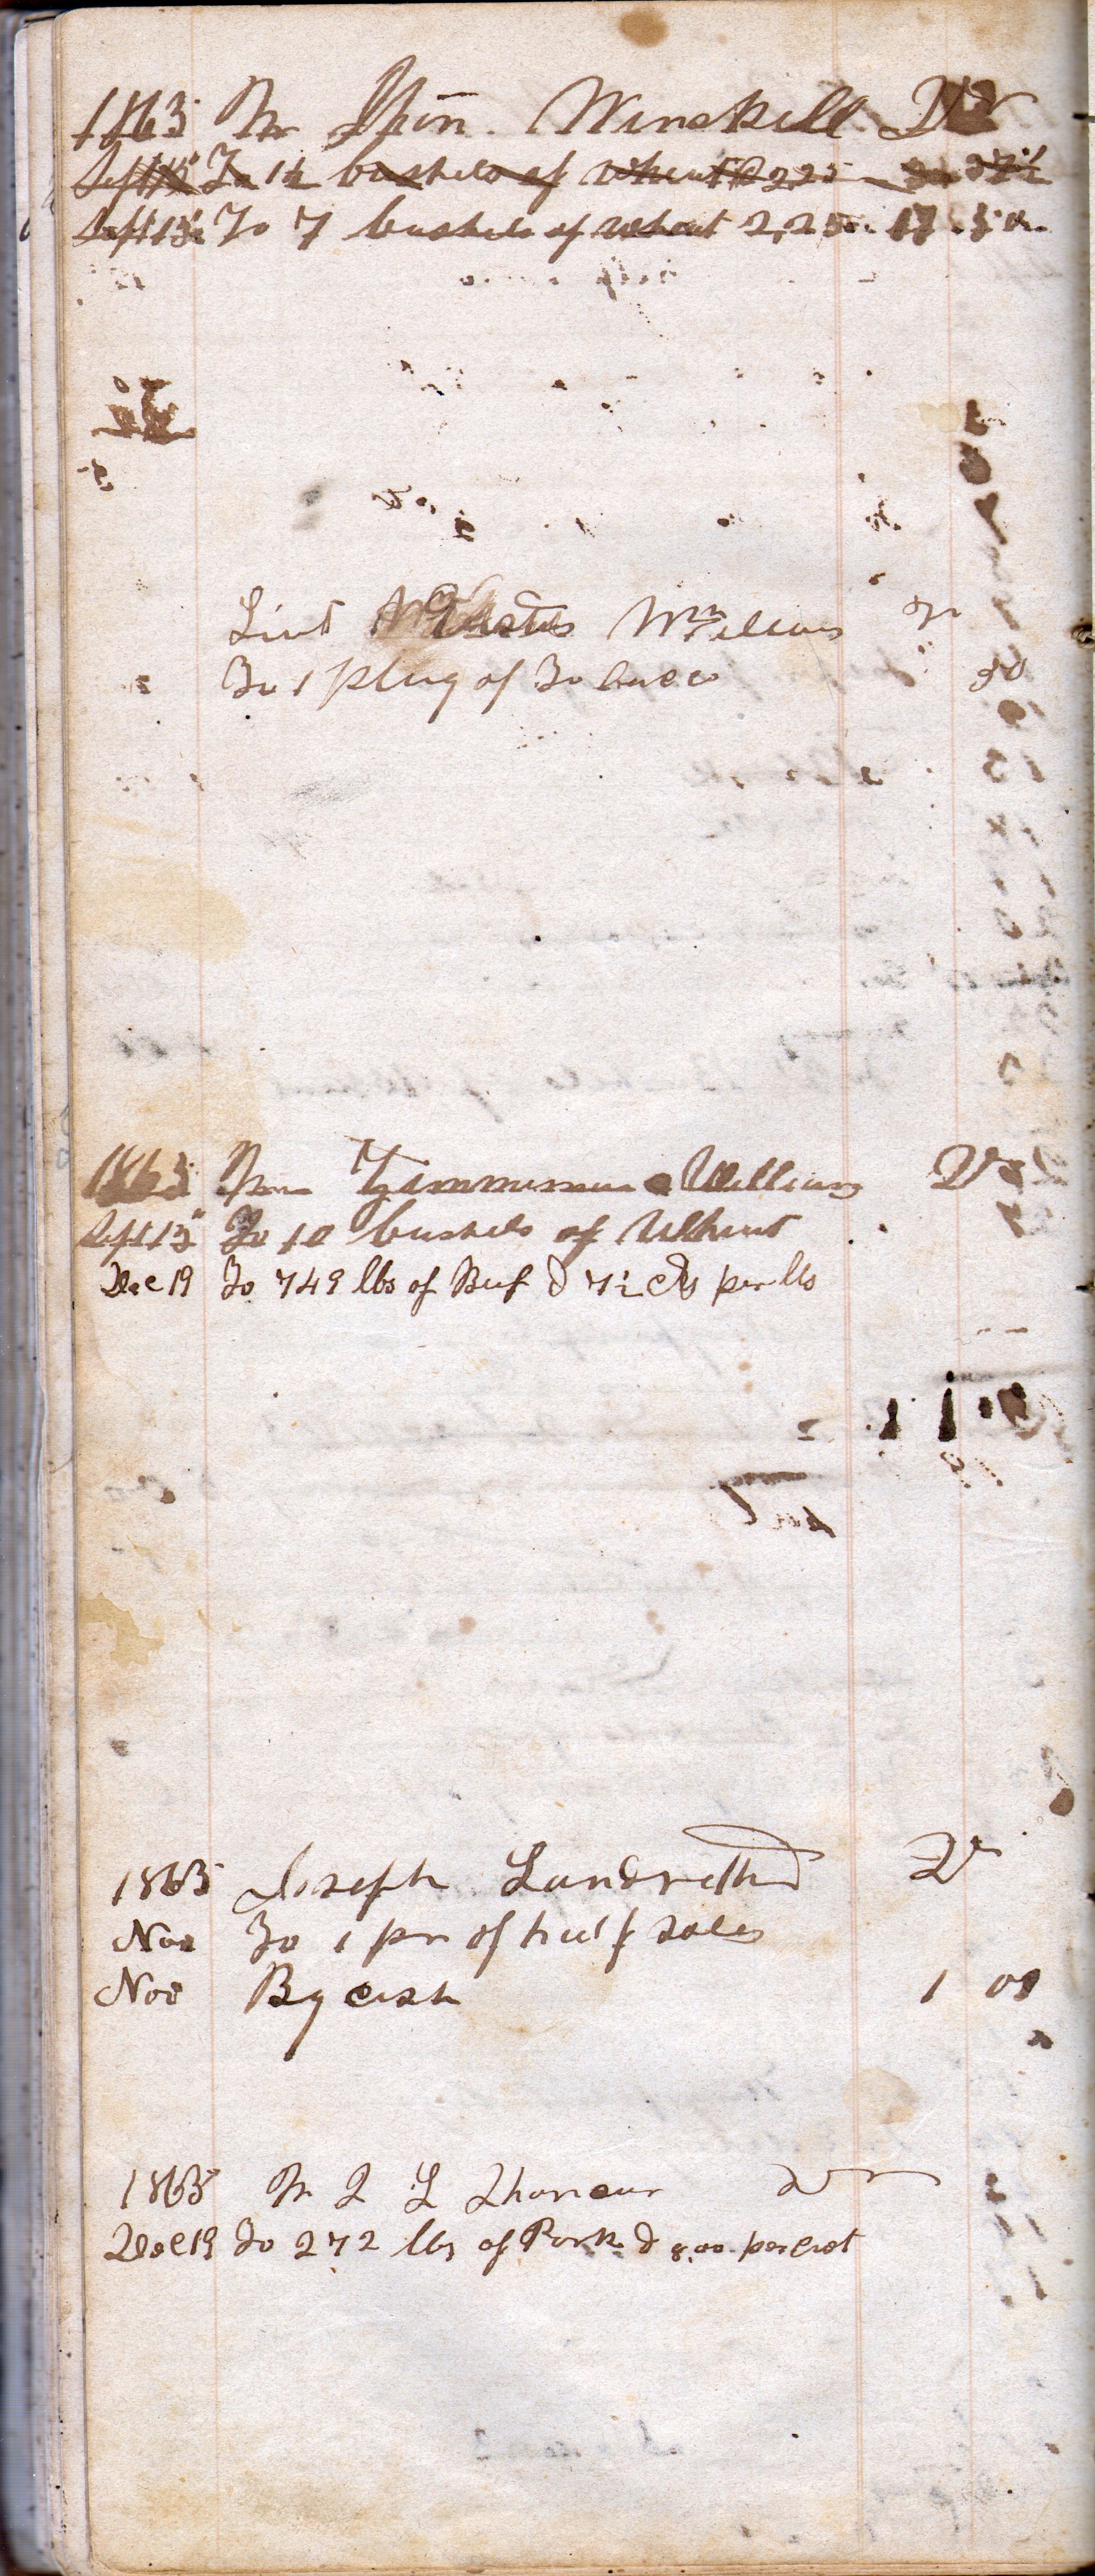 1863 Mr Winekill Dr
Sept 15 To 1½ bushels of wheat @ 2,25 3 37½
Sept 15 To 7 bushels of wheat 2,25 .
Lint Wm
To 1 plug of Tobacco 50
1863 Mr Williams Dr
Sept 15 To 10 bushels of Wheat
Dec 19 To 749 lbs of Beef @ 7½ cts per lb
1863 Joseph Landreth Dr
Nov To 1 pr of half soles
Nov By cash 1 00
1863 Mr L Dr
Dec 19 To 272 lbs of Pork @ 8.00 per cwt